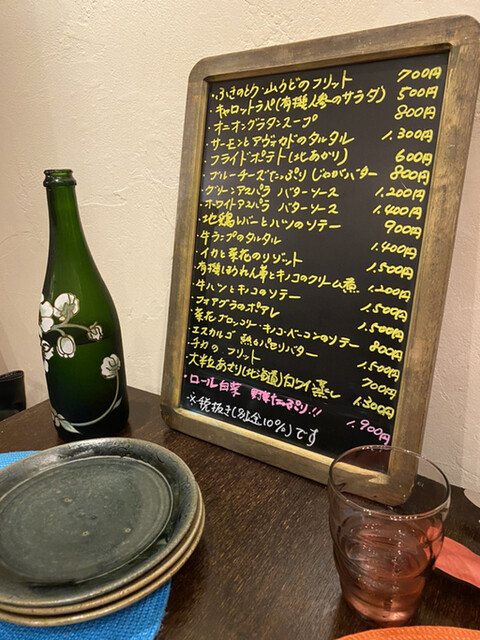 ・ふきのとう・山うどのフリット 700円
・キャロットラペ(有機人参のサラダ) 500円
・オニオングラタンスープ 800円
・サーモンとアヴォカドのタルタル 1.300円
・フライドポテト(北あかり) 600円
・ブルーチーズたっぷり じゃがバター 800円
・グリーンアスパラ バターソース 1,200円
・ホワイトアスパラ バターソース 1.400円
・地鶏レバーとハツのソテー 900円
・牛ランプのタルタル 1.400円
・イカと菜花のリゾット 1.500円
・有機ほうれん草とキノコのクリーム煮 1.200円
・牛ハツとキノコのソテー 1.500円
・フォアグラのポアレ 1.500円
・菜花・ブロッコリー・キノコ・ベーコンのソテー 800円
・エスカルゴ 熱々パセリバター 1.500円
・チカの フリット 700円
・大粒あさり(北海道)白ワイン蒸し 1.300円
・ロール白菜 野菜たっぷり!! 1,900円
・※税抜き(別途10%)です